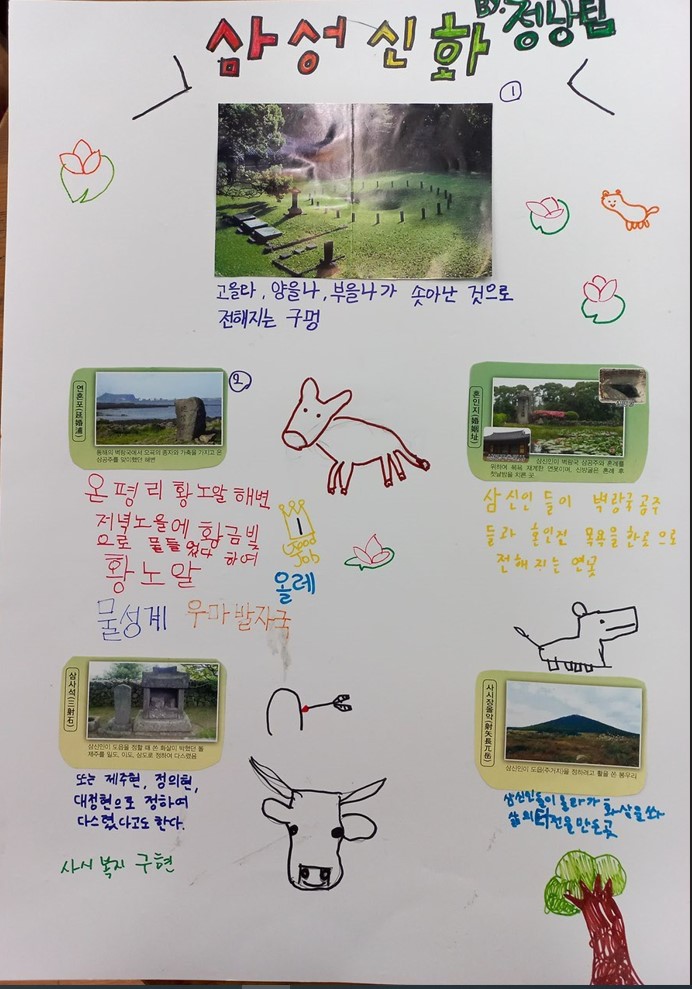 삼성신화
BY.정낭팀
1
고을나, 양을나, 부을나가 솟아난 것으로
전해지는 구멍
2
연혼포(延婚浦)
동해의 벽랑국에서 오곡의 종자와 가축을 가지고 온
삼공주를 맞이했던 해변
온평리 황노알 해변
저녁노을에 황금빛
으로 물들었다 하여
황노알
물성계 우마발자국
1
Good
Job
올레
혼인지(婚姻址)
삼신인이 벽랑국 삼공주와 혼례를
위하여 목욕 재계한 연못이며, 신방굴은 혼례 후
첫날밤을 치른 곳
삼신인들이 벽랑국공주
들과 혼인전 목욕을한곳으로
전해지는 연못
삼사석(三射石)
삼신인이 도읍을 정할 때 쏜 화살이 박혔던 돌
제주를 일도, 이도, 삼도로 정하여 다스렸음
또는 제주현, 정의현,
대정현으로 정하여
다스렸다고도 한다.
사시복지 구현
사시장올악(射矢長兀岳)
삼신인이 도읍(주거지)을 정하려고 활을 쏜 봉우리
삼신인들이 올라가 화살을 쏴
삶의터전을만든곳